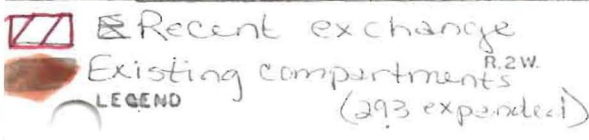 Recent exchange
Existing compartments
R.2W.
LEGEND
(293 expanded)